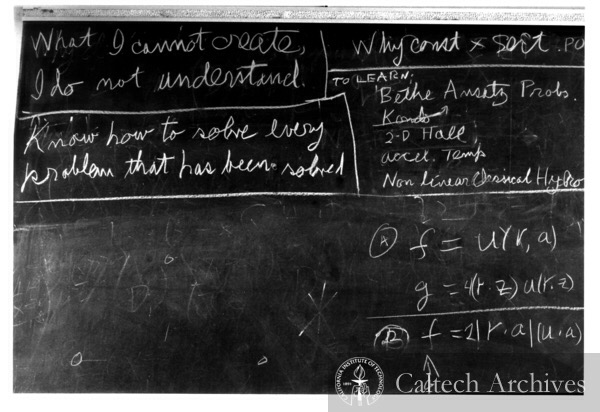 What I cannot create,
I do not understand.
Know how to solve every
problem that has been solved
Why const × sort . PO
TO LEARN:
Bethe Ansatz Probs.
Kondo
2-D Hall
accel. Temp
Non Linear Classical Hydro
(A) f = u(r, a)
g = 4(r·z) u(r·z)
(B) f = 2|r·a|(u·a)
CALIFORNIA INSTITUTE OF TECHNOLOGY
Caltech Archives